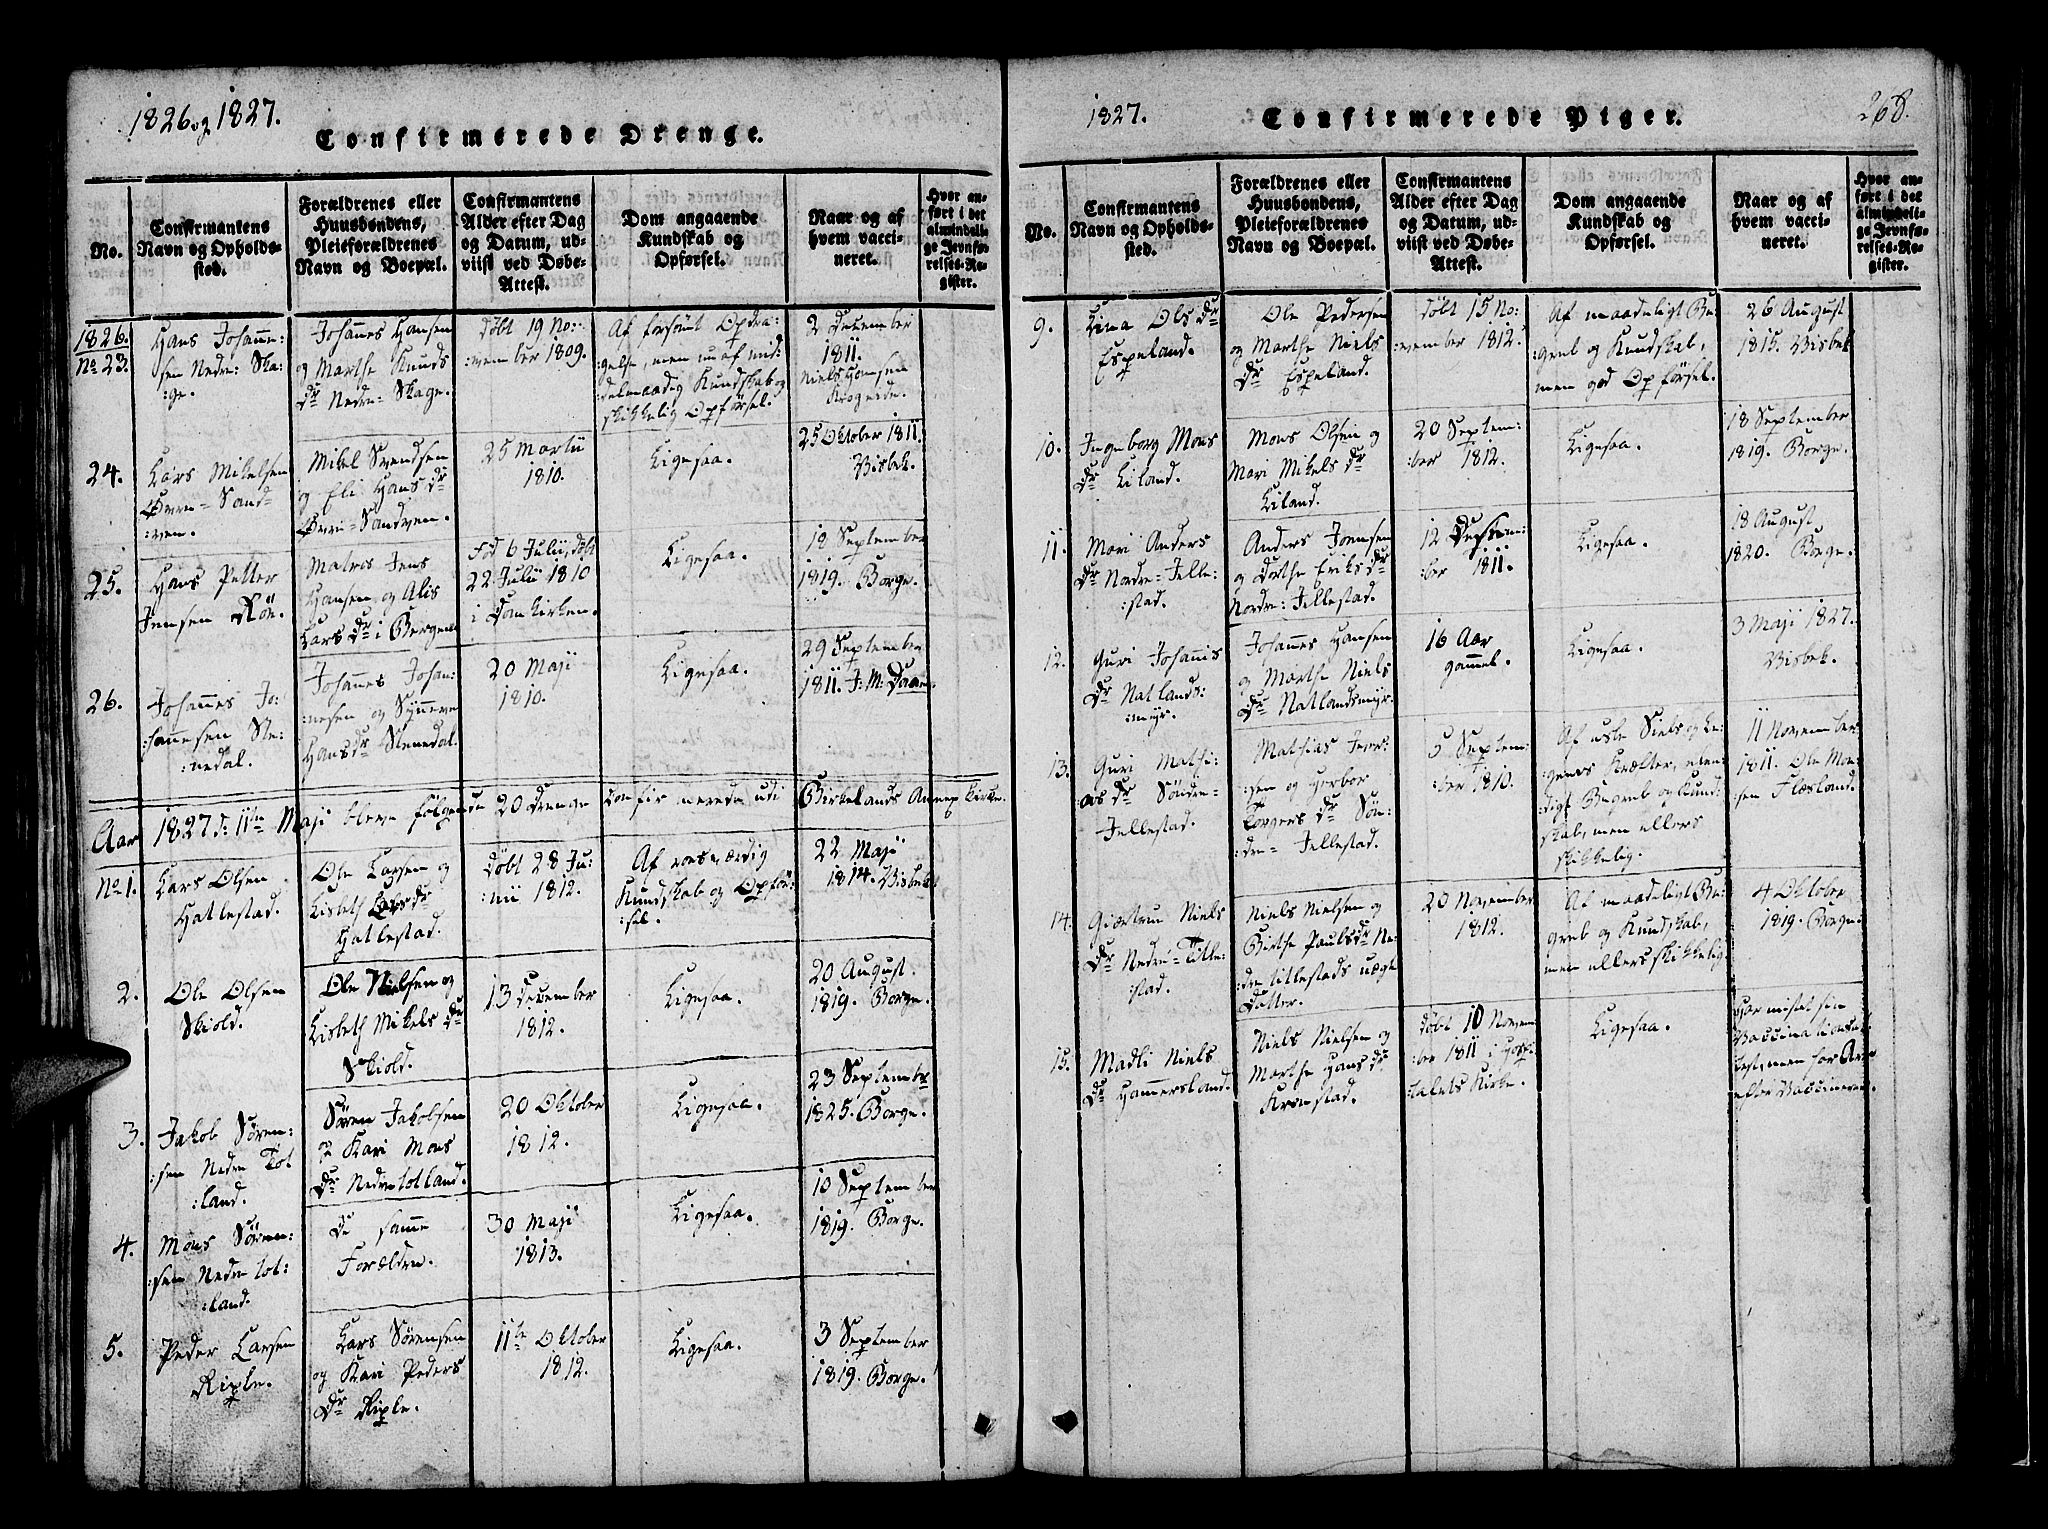 1826 og 1827.
Confirmerede Drenge.
No.
Confirmantens
Navn og Opholds-
sted.
Forældrenes eller
Huusbondens,
Pleieforældrenes
Navn og Boepæl.
Confirmantens
Alder efter Dag
og Datum, ud-
viist ved Døbe-
Attest.
Dom angaaende
Kundskab og
Opførsel.
Naar og af
hvem vacci-
neret.
Hvor an-
ført i det
almindeli-
ge Jevnfø-
relses-Re-
gister.
1826.
No 23.
Hans Johanne-
sen Nedre: Ska-
:ge.
Johannes Hansen
og Marthe Knuds
Dr Nedre- Skage.
døbt 19 No:
:vember 1809.
Af forsømt Opdra-
:gelse, men nu af mid-
delmaadig Kundskab og
skikkelig Opførsel.
2 December
1811.
Niels Hansen
24.
Lars Mikelsen
Øvre- Sand-
:ven.
Mikel Svendsen
og Eli Hans Dr
Øvre- Sandven.
25 Martii
1810.
Ligesaa.
25 Oktober 1811.
Bisbek.
25.
Hans Petter
Jensen Røe.
Matros Jens
Hansen og Alis
Lars Dr i Bergen
fød 6 Julii, døbt
22 Julii 1810
i Domkirken.
Ligesaa.
18 September
1819. Borge.
26.
Johannes Jo:
:hannesen Ste:
:nedal.
Johannes Johan-
:nesen og Synneve
Hans dr Stenedal.
20 Maji
1810.
Ligesaa.
29 September
1811. J: M: Daae.
Aar 1827 d: 11te Maji bleve følgende 20 Drenge Confirmerede udi Birkelands Annex Kirke.
No 1.
Lars Olsen
Hatlestad.
Ole Larsen og
Lisbeth Lars dr
Hatlestad.
døbt 28 Ju:
:nii 1812.
Af roesværdig
Kundskab og Opfør:
:sel.
22 Maji
1814. Bisbek
2.
Ole Olsen
Skiold.
Ole Nielsen og
Lisbeth Mikels Dr
Skiold.
13 December
1812.
Ligesaa.
20 August
1819. Borge.
3.
Jakob Søren:
:sen Nedre Tot
:land.
Søren Jakobsen
og Kari Mons
Dr Nedre Totland.
20 Oktober
1812.
Ligesaa.
23 Septembr
1825. Borge.
4.
Mons Søren:
:sen Nedre Tot:
:land.
De samme
Forældre.
30 Maji
1813.
Ligesaa.
10 September
1819. Borge.
5.
Peder Larsen
Riple.
Lars Sørensen
og Kari Peders
Dr Riple.
11te Oktober
1812.
Ligesaa.
3 September
1819. Borge.
1827.
Confirmerede Piger.
268.
No.
Confirmantens
Navn og Opholds-
sted.
Forældrenes eller
Huusbondens,
Pleieforældrenes
Navn og Boepæl.
Confirmantens
Alder efter Dag
og Datum, ud-
viist ved Døbe-
Attest.
Dom angaaende
Kundskab og
Opførsel.
Naar og af
hvem vacci-
neret.
Hvor an-
ført i det
almindeli-
ge Jevnfø-
relses-Re-
gister.
9.
Lina Ols Dr
Espeland.
Ole Pedersen
og Marthe Niels
Dr Espeland.
døbt 15 No:
:vember 1812.
Af maadeligt Be-
:greb og Kundskab,
men god Opførsel.
26 August
1815. Bisbek
10.
Ingeborg Mons
Dr Liland.
Mons Olsen og
Mari Mikels dr
Liland.
20 Septem:
:ber 1812.
Ligesaa.
18 September
1819. Borge.
11.
Mari Anders
Dr Nordre- Jelle:
:stad.
Anders Jonnsen
og Dorthe Eriks Dr
Nordre: Jellestad.
12 Decem:
:ber 1811.
Ligesaa.
18 August
1820. Borge.
12.
Guri Johannis
Dr Natlands:
:myr.
Johannes Hansen
og Marthe Niels
Dr Natlandsmyr.
16 Aar
gammel.
Ligesaa.
3 Maji 1827.
Bisbek.
13.
Guri Mathi:
:as Dr Søndre-
Jellestad.
Mathias Iver:
:sen og Herbor
Torgers Dr Søn:
:dre- Jellestad.
5 Septem:
:ber 1810.
Af usle Siels og Le:
:gems Kræfter, elen:
:digt Begreb og Kund-
skab, men ellers
skikkelig.
11 November
1811. Ole Mon:
:sen Flesland.
14.
Giertru Niels
Dr Nedre- Title:
:stad.
Niels Nielsen og
Birthe Pauls dr Ne-
:dre Titlestads uægte
Datter.
20 November
1812.
Af maadeligt Be:
greb og Kundskab,
men ellers skikkelig.
4 Oktober
1819. Borge.
15.
Madli Niels
Dr Hammersland.
Niels Nielsen og
Marthe Hans Dr
Kronstad.
døbt 10 Novem
:ber 1811 i Hospi
:talets Kirke.
Ligesaa.
har mistet sin
Vaccinationsat
test, men har Arr
efter Vaccineren.